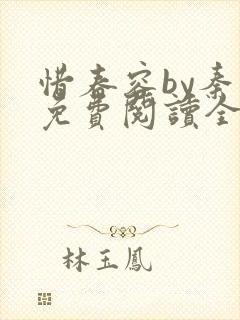 惜春容by秦
免費閱讀全
林玉鳳